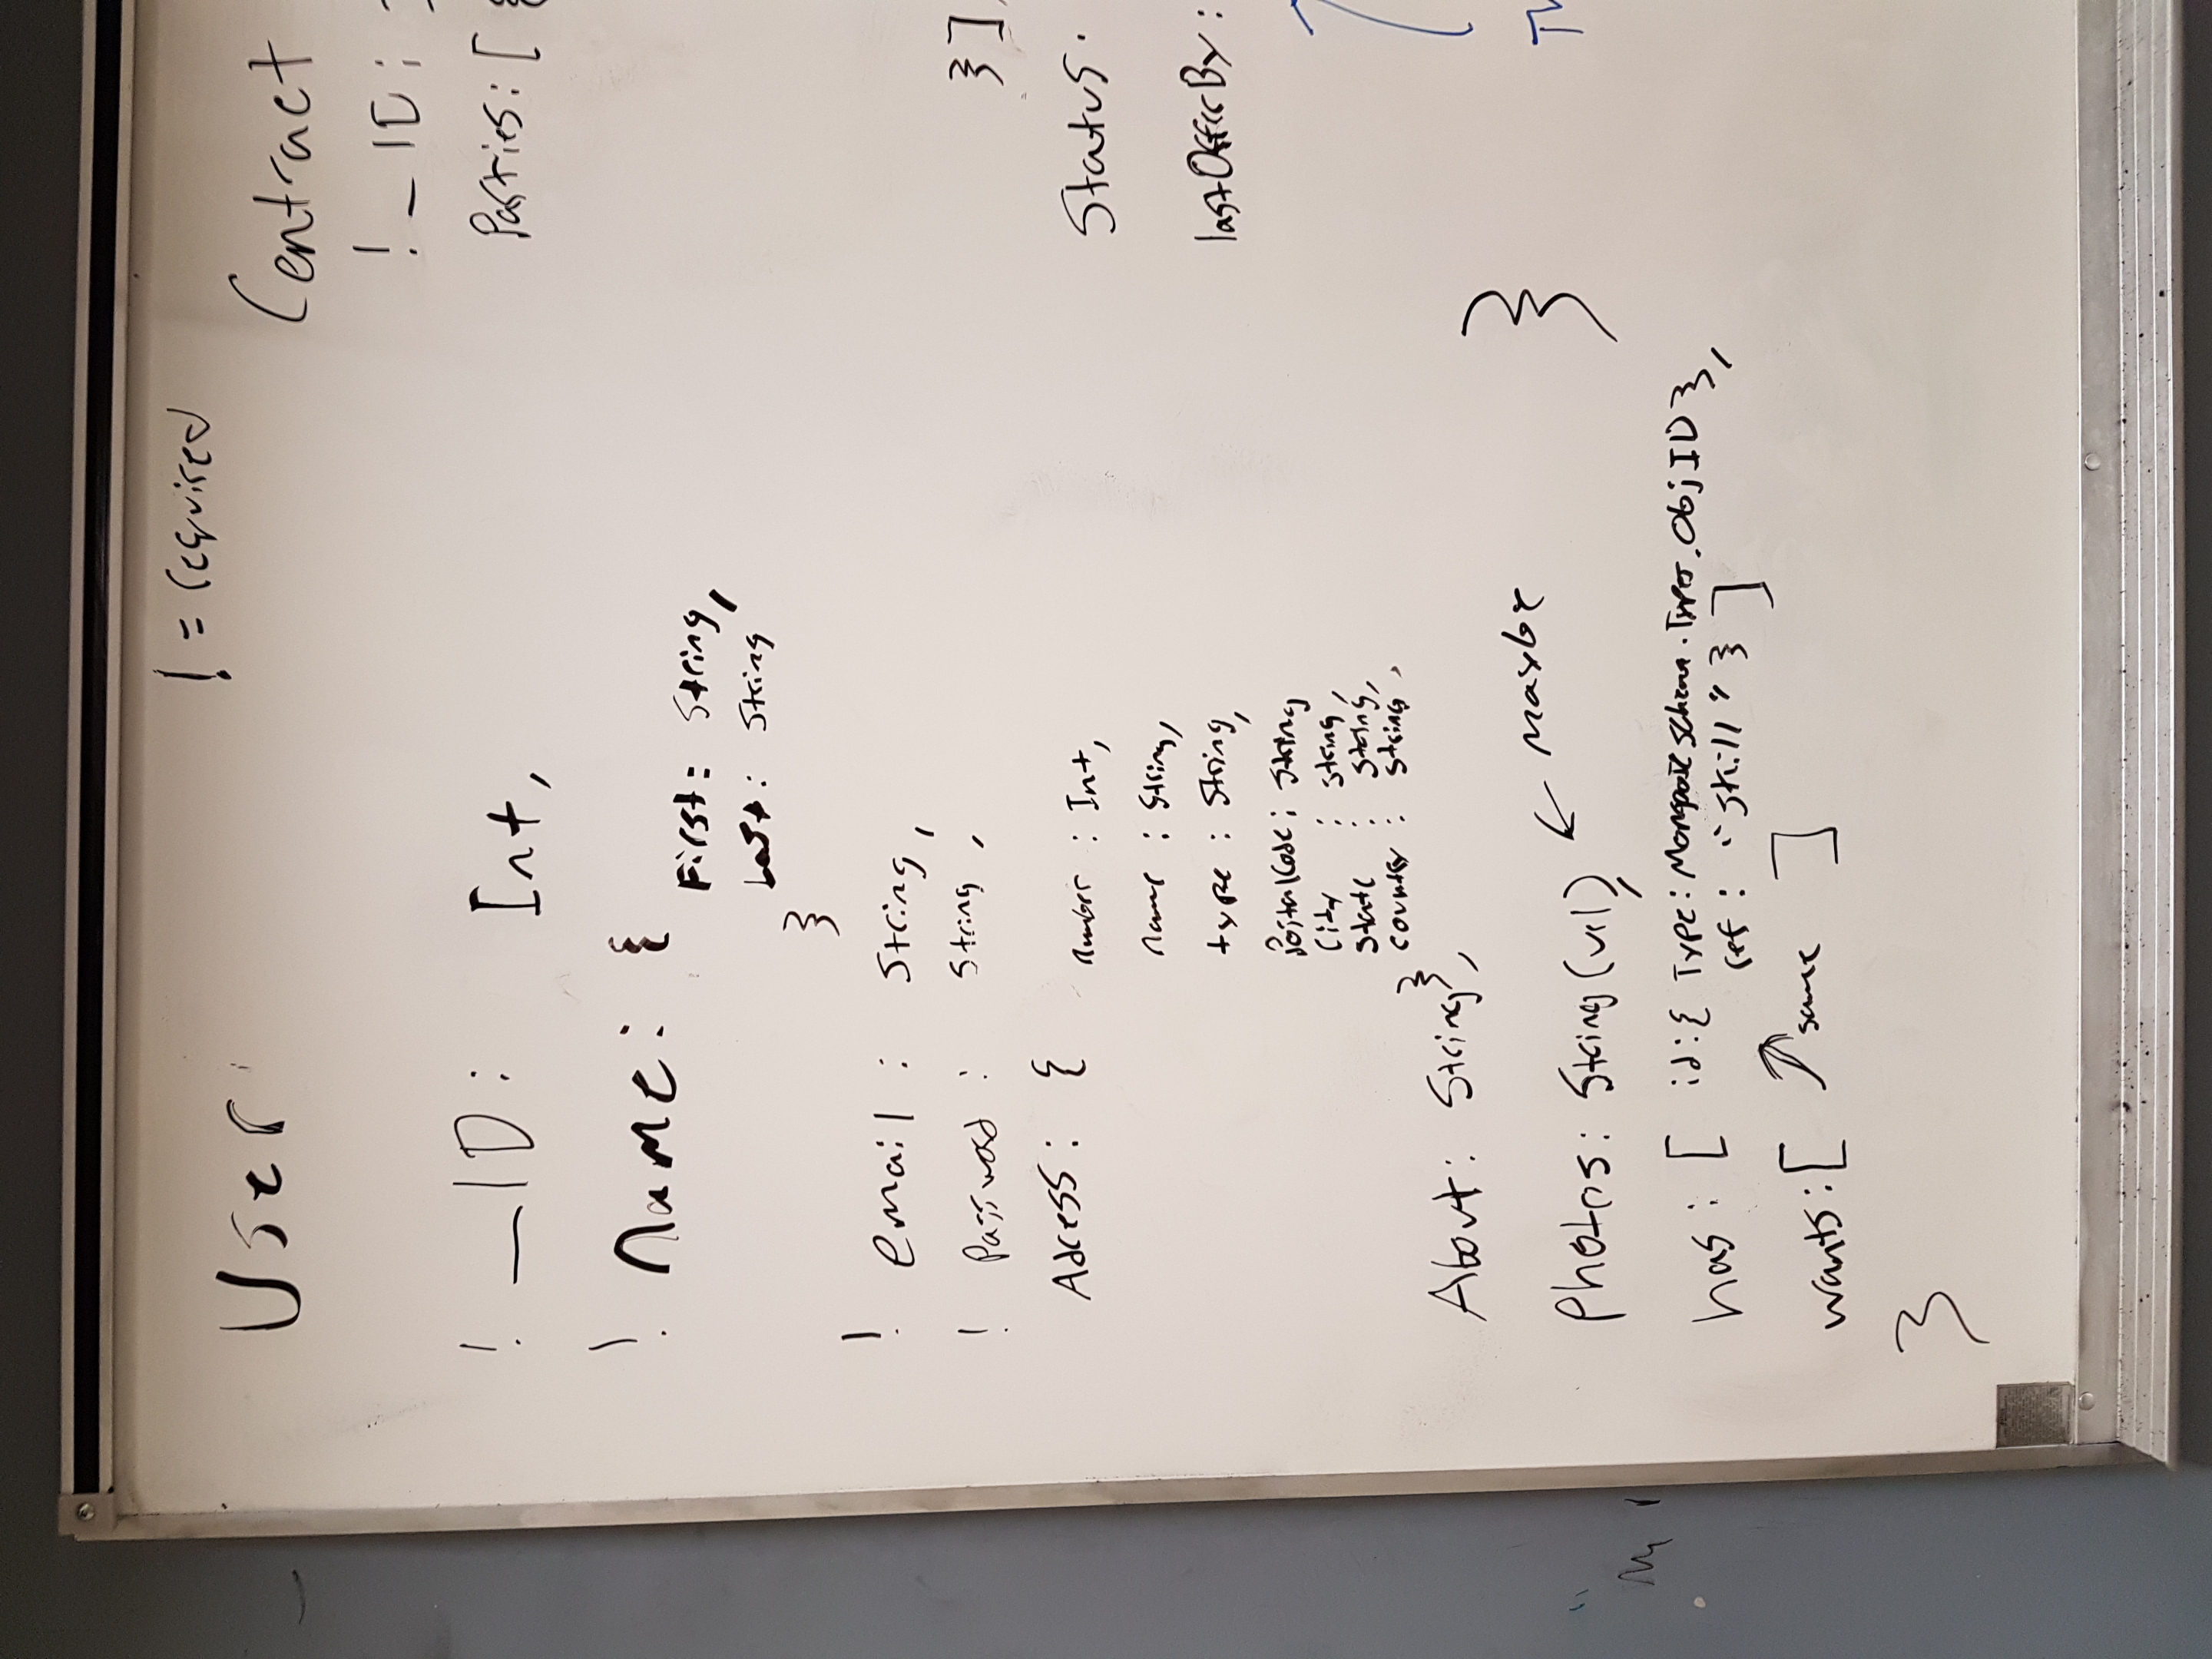 ! = required
User
! _ID: Int,
! name: {
First: String,
Last: String
}
! email: String,
! Password: String,
Adress: {
number : Int,
name : String,
type : String,
PostalCode: String
City : String,
state : String,
country : String,
}
About: String,
Photos: String (url), ← maybe
has: [ id:{ Type: Mongoose Schema.Types.ObjID },
ref: "skill" } ]
wants: [ same ]
}
Contract
! _ID:
Parties: [ {
}],
Status:
lastOfferBy:
}